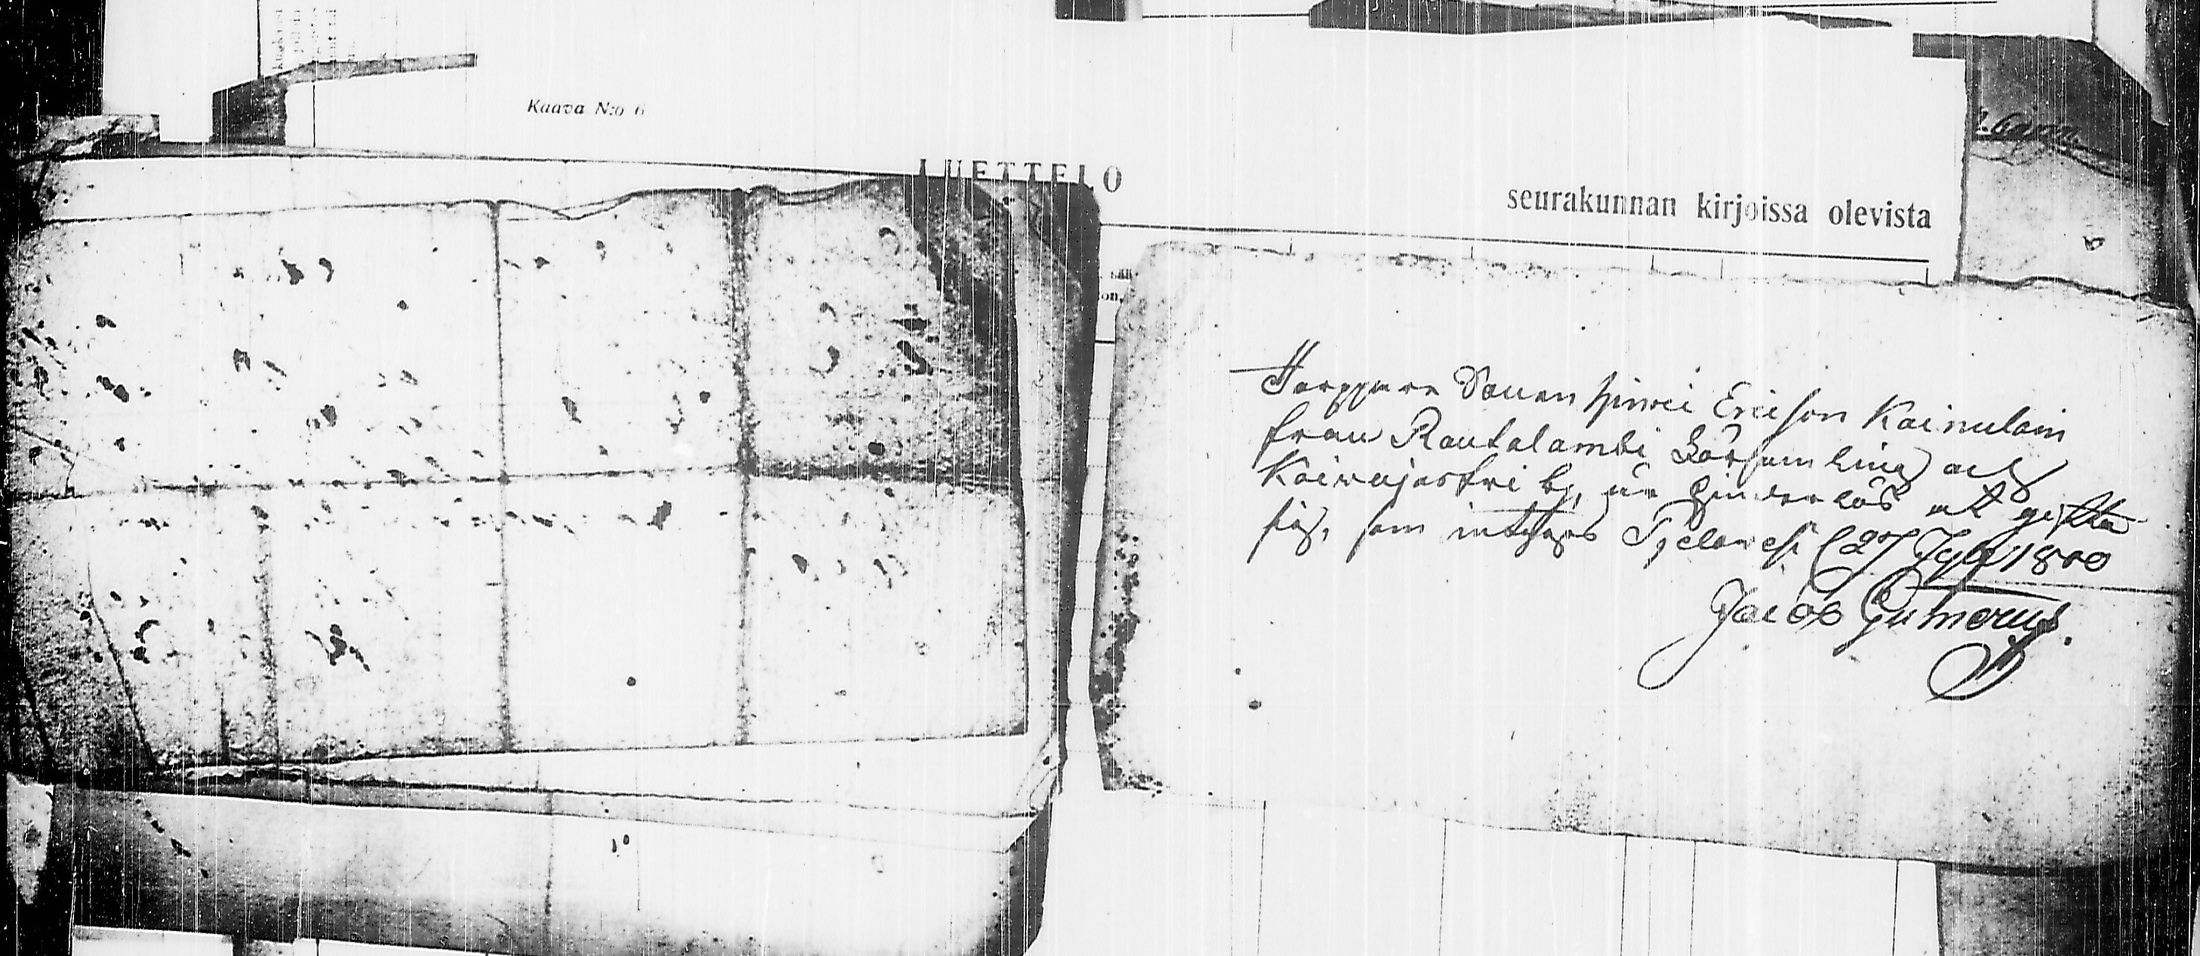 Kaava N:o 6
LUETTELO
seurakunnan kirjoissa olevista
Torpparn Hinric Ericson Kainulain
fran Rautalambi Församling och
Koivujerfvi by, är hinderlös at gifta
sig, som intygas Pjelavesi 27 1800
Jacob Gummerus.